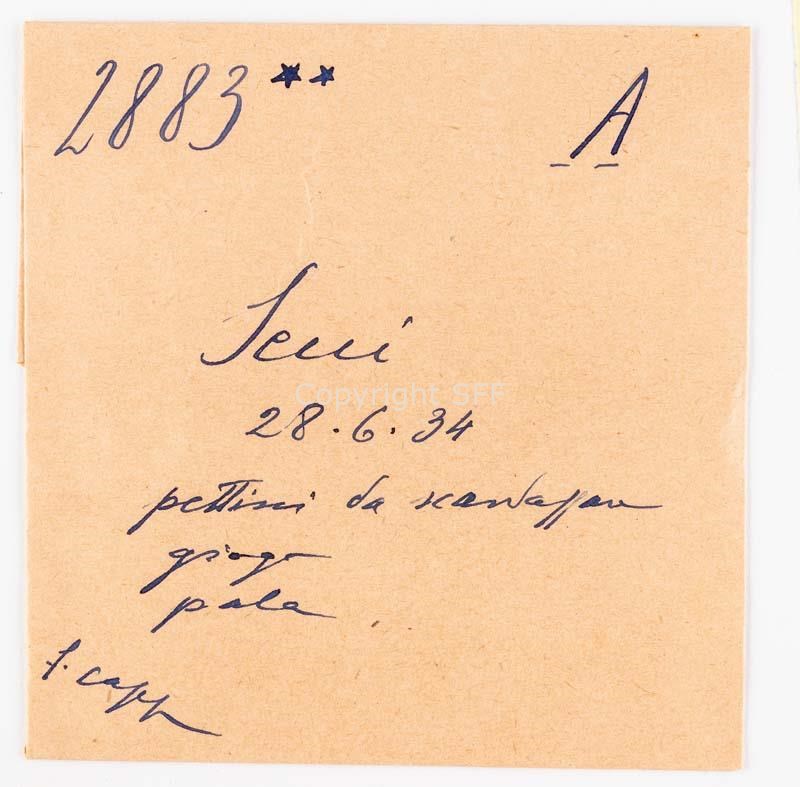 2883 ** A
Senni
Copyright SFF
28.6.34
pettini da scardassare
giogo
pala